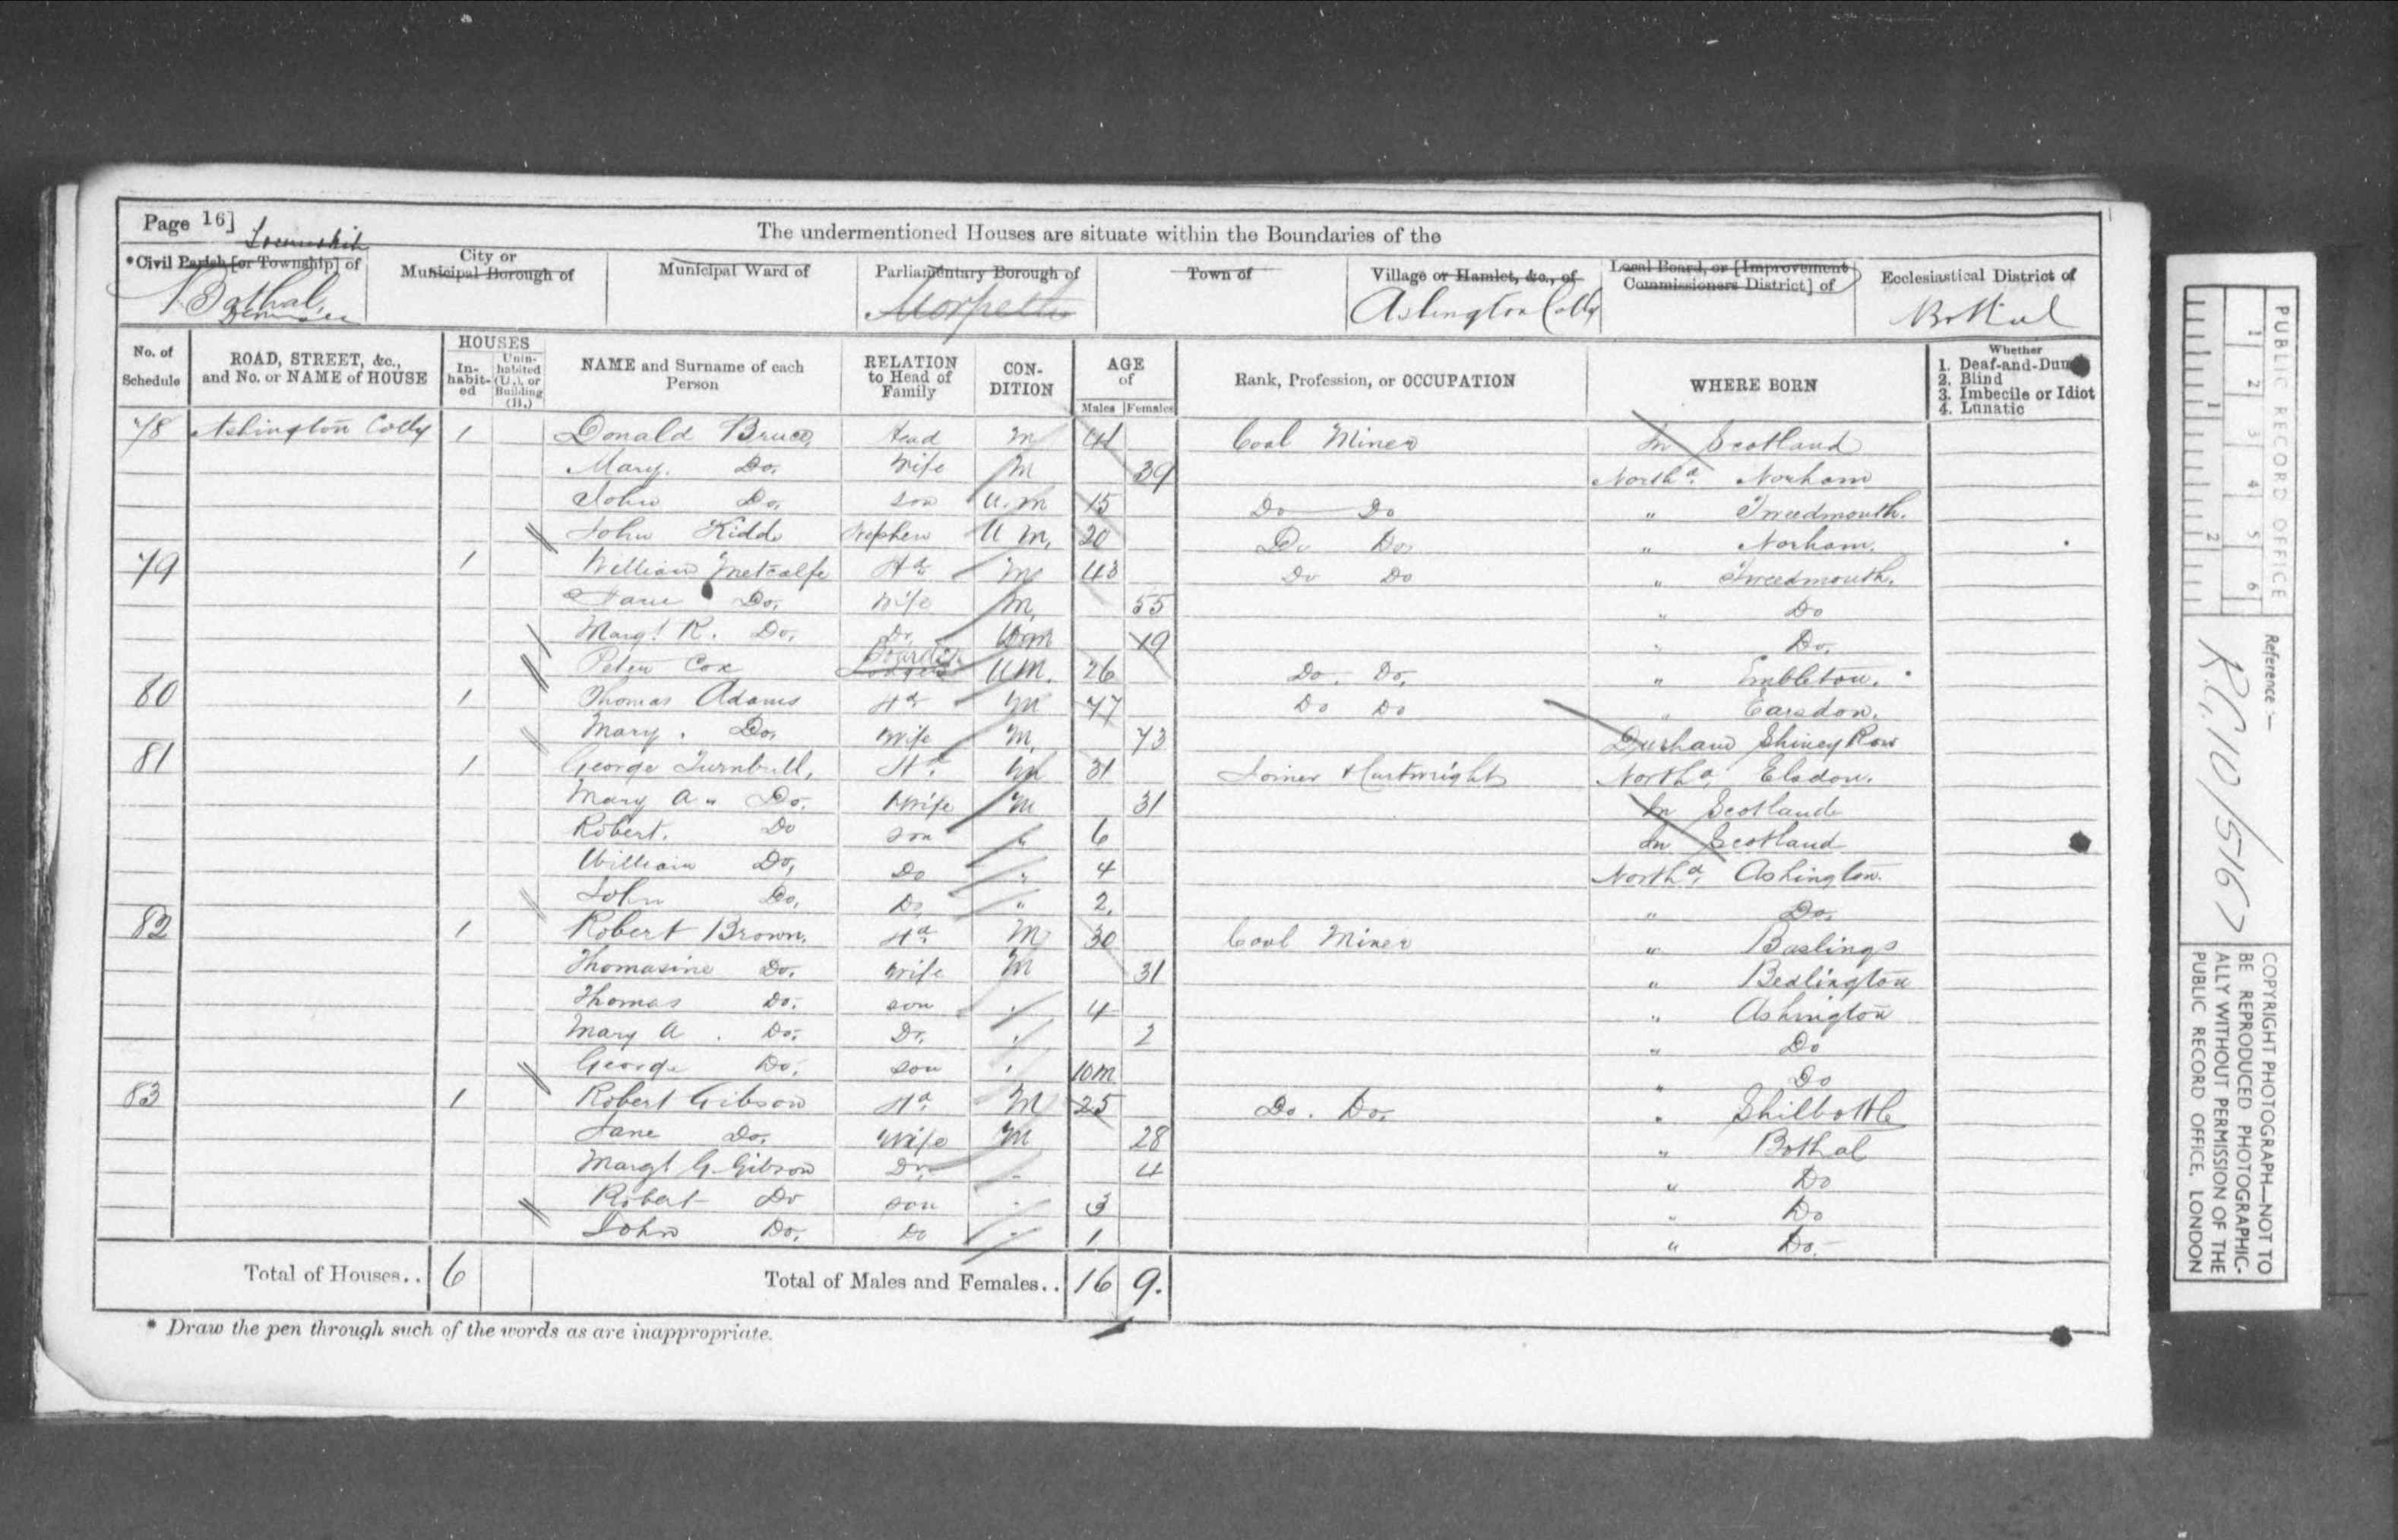 Page 16]
The undermentioned Houses are situate within the Boundaries of the
Township
*Civil Parish [or Township] of
City or Municipal Borough of
Municipal Ward of
Parliamentary Borough of
Town of
Village or Hamlet, &c., of
Local Board, or [Improvement Commissioners District] of
Ecclesiastical District of
Bothal
Morpeth
Ashington Colly
Bothal
No. of Schedule
ROAD, STREET, &c., and No. or NAME of HOUSE
HOUSES
In-habit-ed
Unin-habited (U.), or Building (B.)
NAME and Surname of each Person
RELATION to Head of Family
CON-DITION
AGE of
Males
Females
Rank, Profession, or OCCUPATION
WHERE BORN
Whether
1. Deaf-and-Dumb
2. Blind
3. Imbecile or Idiot
4. Lunatic
78 Ashington Colly 1 Donald Bruce Head M 41 Coal Miner In Scotland
Mary. Do. Wife M 39 Northd. Norham
John Do. son U. M 15 Do Do " Tweedmouth.
John Kidd Nephew U M. 20 Do Do " Norham.
79 1 William Metcalfe Hd M 43 Do Do " Tweedmouth.
Jane Do. Wife M. 55 " Do
Margt R. Do. Dr 19 " Do.
Peter Cox Boarder U M. 26 Do. Do. " Embleton.
80 1 Thomas Adams Hd M 77 Do Do " Earsdon.
Mary. Do. Wife M. 73 Durham Shiney Row
81 1 George Turnbull, Hd M 31 Joiner & Cartwright Northd. Elsdon.
Mary A " Do. Wife M 31 In Scotland
Robert. Do son " 6 In Scotland
William Do, Do " 4 Northd. Ashington.
John Do, Do " 2. " Do.
82 1 Robert Brown. Hd M 30 Coal Miner "
Thomasine Do. Wife M 31 " Bedlington
Thomas Do. son " 4 " Ashington
Mary A. Do. Dr. " 2 " Do
George Do. son " 10m " Do
83 1 Robert Gibson Hd M 25 Do. Do. " Shilbottle
Jane Do. Wife M 28 " Bothal
Margt G. Gibson Dr. " 4 " Do
Robert Do son " 3 " Do
John Do. Do " 1 " Do.
Total of Houses.. 6 Total of Males and Females.. 16 9.
* Draw the pen through such of the words as are inappropriate.
PUBLIC RECORD OFFICE
1 2 3 4 5 6
1 2
Reference:—
R.G. 10/5167
COPYRIGHT PHOTOGRAPH—NOT TO
BE REPRODUCED PHOTOGRAPHIC-
ALLY WITHOUT PERMISSION OF THE
PUBLIC RECORD OFFICE, LONDON